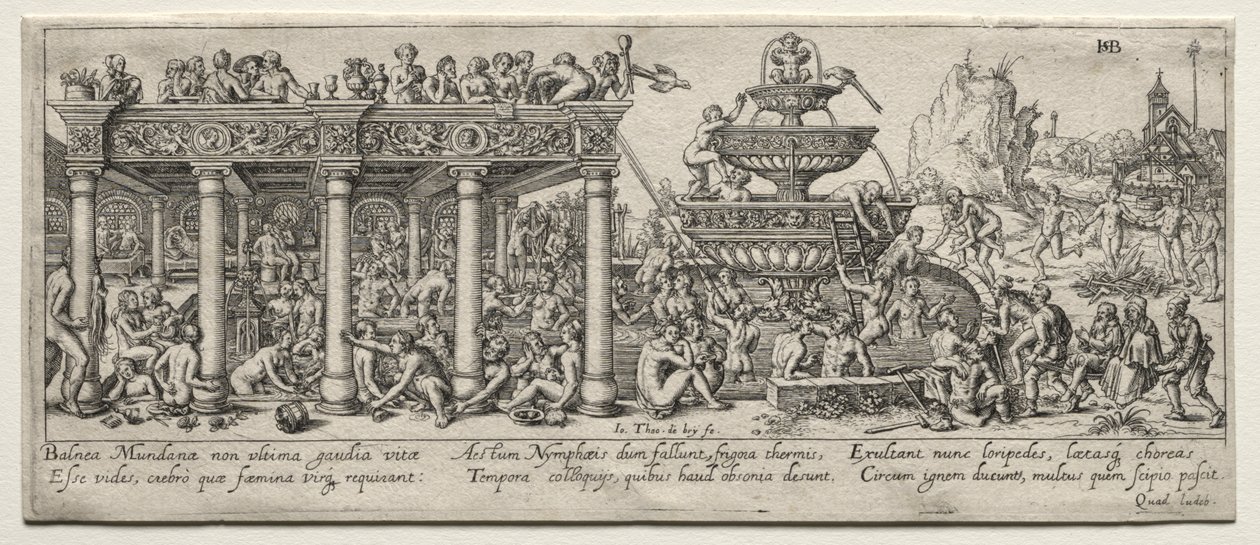 HSB
Io. Theo. de bry fe.
Balnea Mundanæ non vltima gaudia vitæ
Esse vides, crebrò quæ fæmina virq́ꝫ requirant:
Aestum Nymphæis dum fallunt, frigora thermis,
Tempora colloquijs, quibus haud obsonia desunt.
Exultant nunc loripedes, lætasq́ꝫ choreas
Circum ignem ducunt, multus quem scipio pascit.
Quad ludob.